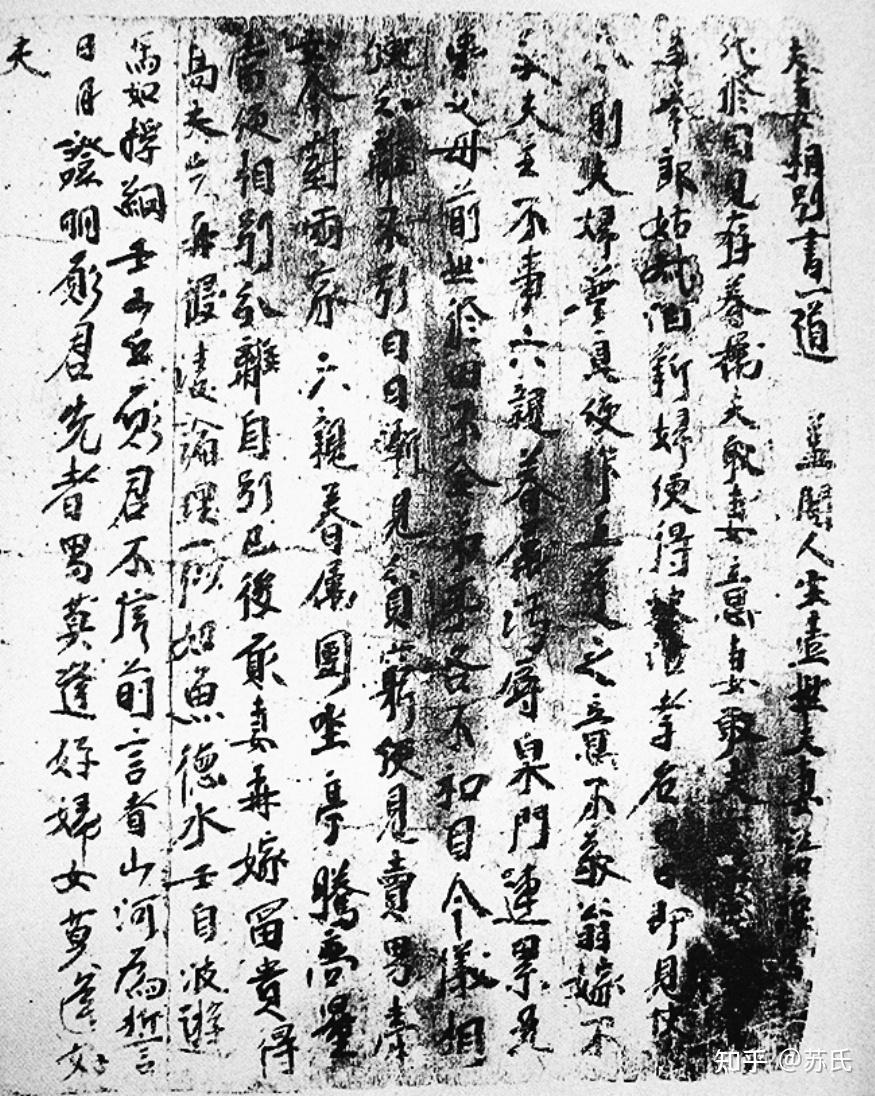 夫妻相別書一道 蓋聞人生壹世夫妻語讓為
代修因見存眷屬夫取妻意妻取夫
奉郎姑叔伯新婦便得孝名日日即見快
則夫婦無良便作五逆之意不敬翁嫁不
敬夫主不事六親眷屬污辱梟門連累兄
弟父母前世修因不全弟各不和目今儀相
便分離不別日日漸見貧窮便見賣男賣
女今對兩家六親眷屬團坐亭騰商量
當便相別分離自別已後願妻再嫁富貴得
高夫厶再侵凌論理一似如魚德水壬自波遊
馬如捋綱壬山丘願君不信前言者山河為誓
日月證明願君先者男莫逢好婦女莫逢好
夫
知乎 @苏氏